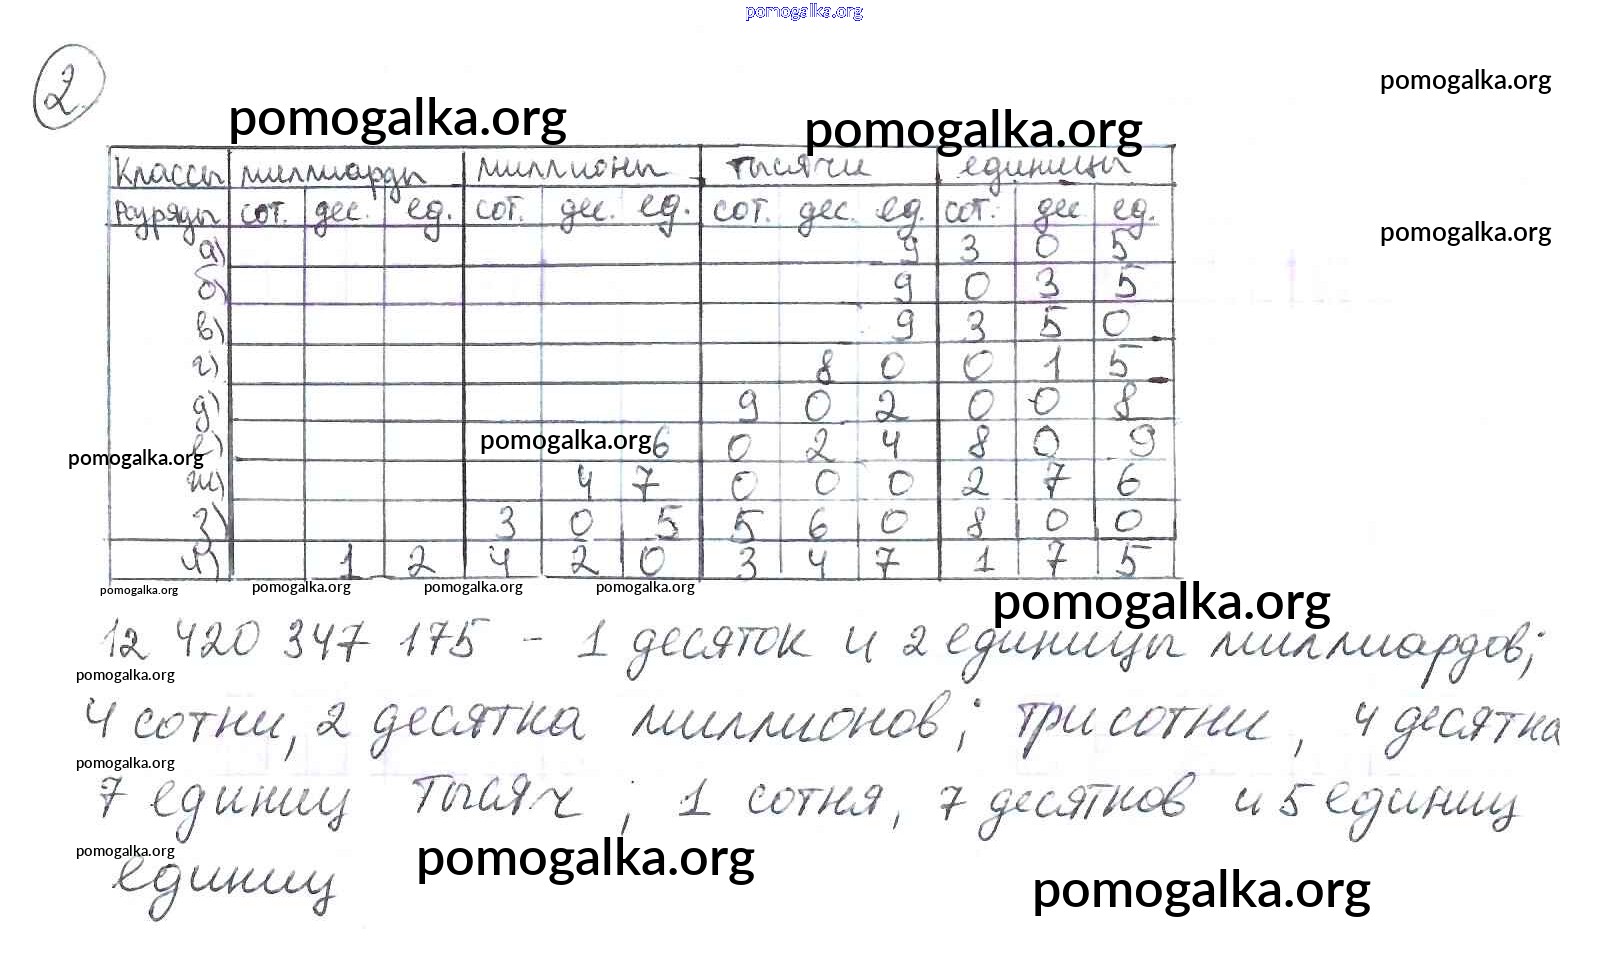 pomogalka.org
2
pomogalka.org
pomogalka.org pomogalka.org
Классы миллиарды миллионы тысячи единицы
Разряды сот. дес. ед. сот. дес. ед. сот. дес. ед. сот. дес ед.
pomogalka.org
а) 9 3 0 5
б) 9 0 3 5
в) 9 3 5 0
г) 8 0 0 1 5
д) 9 0 2 0 0 8
е) pomogalka.org 6 0 2 4 8 0 9
pomogalka.org
ж) 4 7 0 0 0 2 7 6
з) 3 0 5 5 6 0 8 0 0
и) 1 2 4 2 0 3 4 7 1 7 5
pomogalka.org pomogalka.org pomogalka.org pomogalka.org pomogalka.org
12 420 347 175 - 1 десяток и 2 единицы миллиардов;
pomogalka.org
4 сотни, 2 десятка миллионов; три сотни, 4 десятка
pomogalka.org
7 единиц тысяч; 1 сотня, 7 десятков и 5 единиц
pomogalka.org
единиц pomogalka.org pomogalka.org